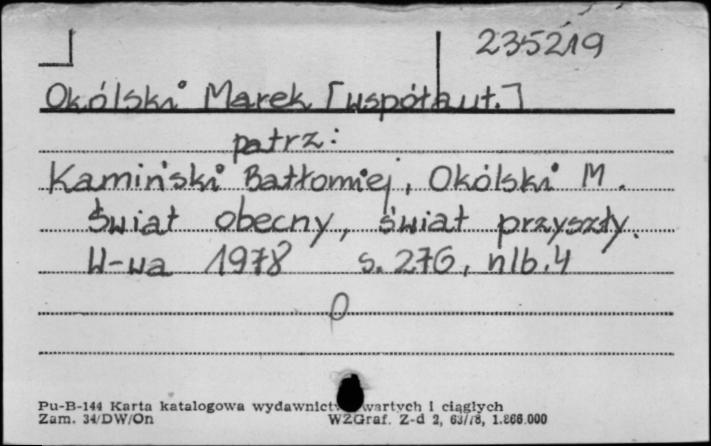 235219
Okólski Marek [współaut.]
patrz:
Kamiński Bartłomiej, Okólski M.
Świat obecny, świat przyszły.
W-wa 1978 s. 276, nlb. 4
0
Pu-B-144 Karta katalogowa wydawnictw zwartych i ciągłych
Zam. 34/DW/On WZGraf. Z-d 2, 63/78, 1.866.000